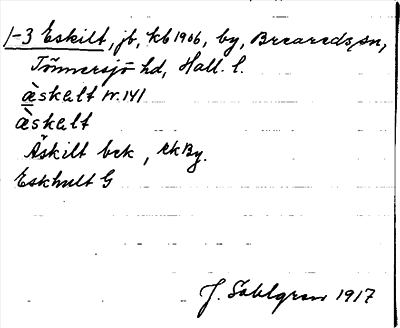 1-3 Eskilt, jb, kb 1906, by, Breareds sn,
Tönnersjö hd, Hall. l.
æ̀skəlt nr. 141
æ̀skəlt
Äskilt bek, ekBy.
Eskhult G
J. Sahlgren 1917